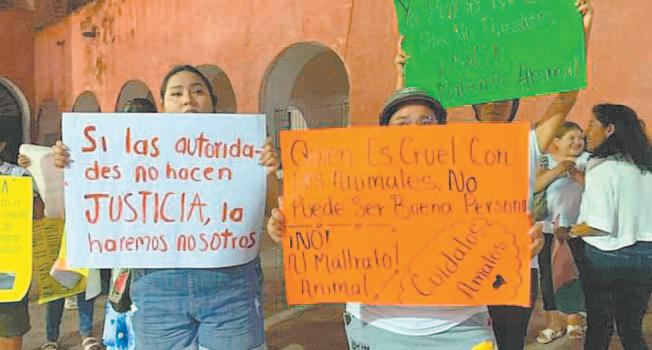 Si las autorida-
des no hacen
JUSTICIA, la
haremos nosotros
Quien Es Cruel Con
Los Animales. No
Puede Ser Buena Persona
¡NO!
Al Maltrato!
Animal.
Cuidalos
Amalos
Que No Pueden
Maltrato Animal